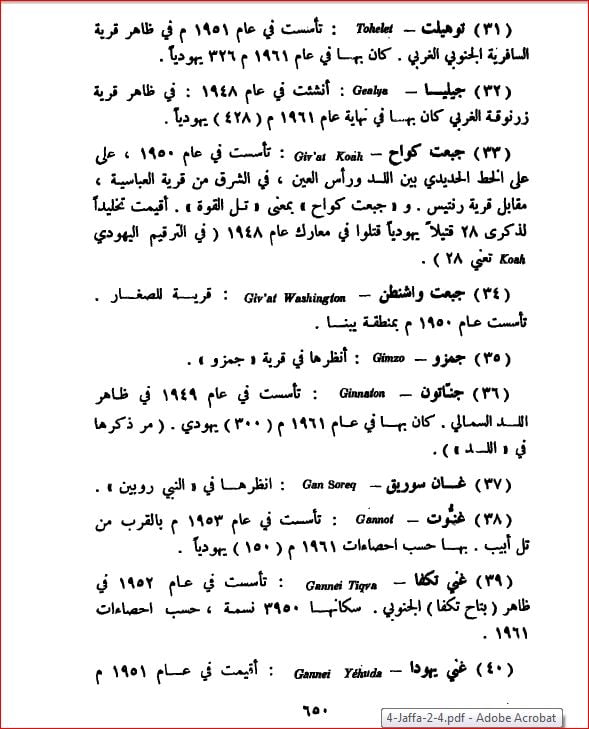 (٣١) توهيلت – Tohelet : تأسست في عام ١٩٥١ م في ظاهر قرية
السافرية الجنوبي الغربي . كان بهـا في عام ١٩٦١ م ٣٢٦ يهودياً .
(٣٢) جيليـا – Gealya : أنشئت في عام ١٩٤٨ : في ظاهر قرية
زرنوقة الغربي كان بهـا في نهاية عام ١٩٦١ م ( ٤٢٨ ) يهودياً .
(٣٣) جبعت كواح – Giv'at Koah : تأسست في عام ١٩٥٠ ، على
على الخط الحديدي بين اللد ورأس العين ، في الشرق من قرية العباسية ،
مقابل قرية رنتيس . و « جبعت كواح » بمعنى « تـل القوة » . أقيمت تخليداً
لذكرى ٢٨ قتيلاً يهودياً قتلوا في معارك عام ١٩٤٨ ( في الترقيم اليهودي
Koah تعني ٢٨ ) .
(٣٤) جبعت واشنطن – Giv'at Washington : قريـة للصغـار .
تأسست عـام ١٩٥٠ م بمنطقـة يبنـا .
(٣٥) جمزو – Gimzo : أنظرها في قرية « جمزو » .
(٣٦) جنّاتون – Ginnaton : تأسست في عام ١٩٤٩ في ظاهر
اللـد السمالي . كان بهـا في عـام ١٩٦١ م ( ٣٠٠ ) يهودي . ( مر ذكرها
في « اللـد » ) .
(٣٧) غـان سوريق – Gan Soreq : انظرهـا في « النبي روبين » .
(٣٨) غنّوت – Gannot : تأسست في عام ١٩٥٣ م بالقرب من
تل أبيب . بهـا حسب احصاءات ١٩٦١ م ( ١٥٠ ) يهودياً .
(٣٩) غني تكفا – Gannei Tiqva : تأسست في عـام ١٩٥٢ في
ظاهر ( بتاح تكفا ) الجنوبي . سكانهـا ٣٩٥٠ نسمة ، حسب احصاءات
١٩٦١ .
(٤٠) غني يهودا – Gannei Yéhuda : أقيمت في عـام ١٩٥١ م
٦٥٠
4-Jaffa-2-4.pdf - Adobe Acrobat